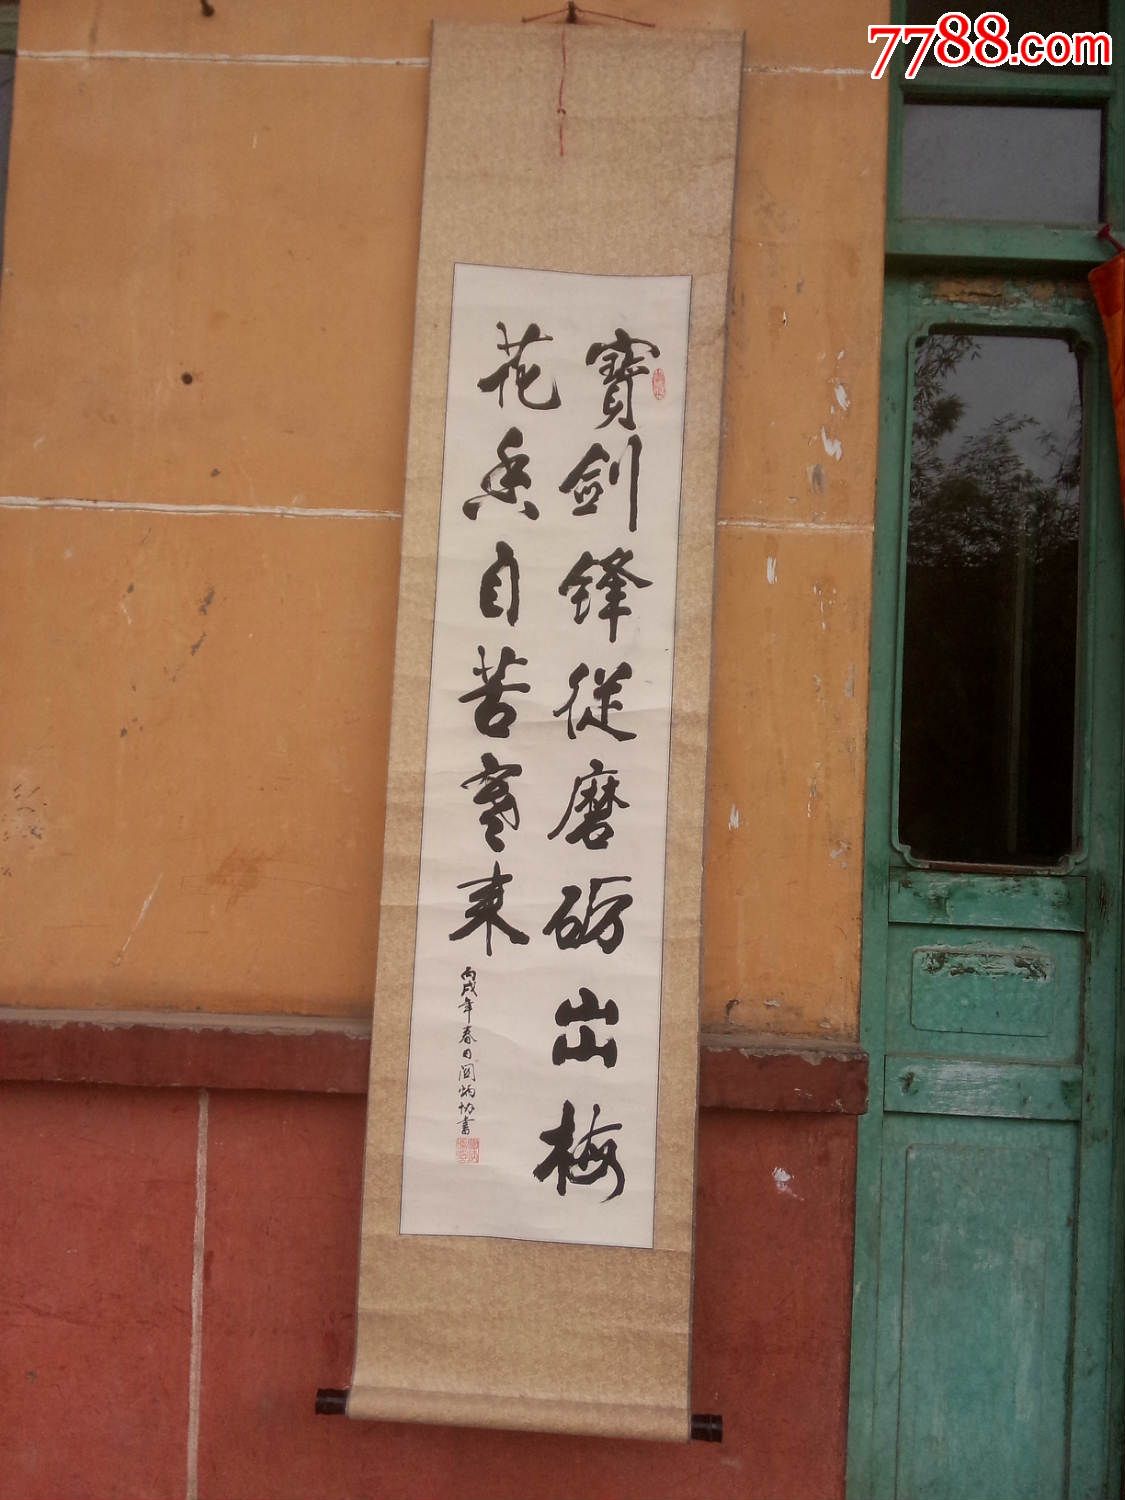 7788.com
寶劍鋒從磨砺出梅
花香自苦寒来
丙戌年春日阎炳协書